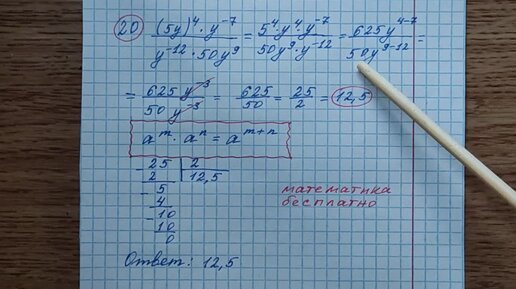 20 (5y)⁴ · y⁻⁷ / y⁻¹² · 50y⁹ = 5⁴ · y⁴ · y⁻⁷ / 50y⁹ · y⁻¹² = 625y⁴⁻⁷ / 50y⁹⁻¹² =
= 625 y⁻³ / 50 y⁻³ = 625 / 50 = 25 / 2 = 12,5
aᵐ · aⁿ = aᵐ⁺ⁿ
- 25 | 2
2 | 12,5
- 5
4
- 10
10
0
математика
бесплатно
Ответ: 12,5